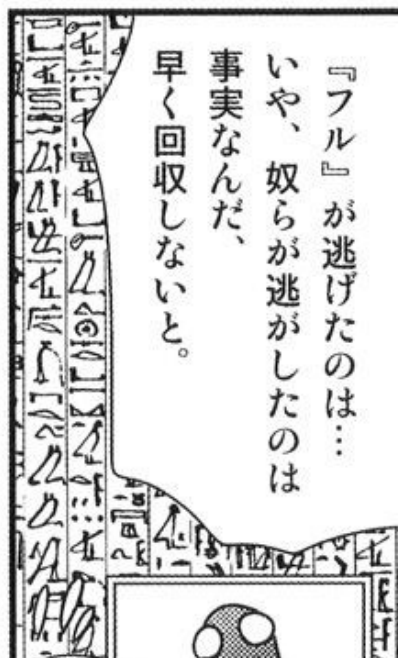 『フル』が逃げたのは…
いや、奴らが逃がしたのは
事実なんだ、
早く回収しないと。